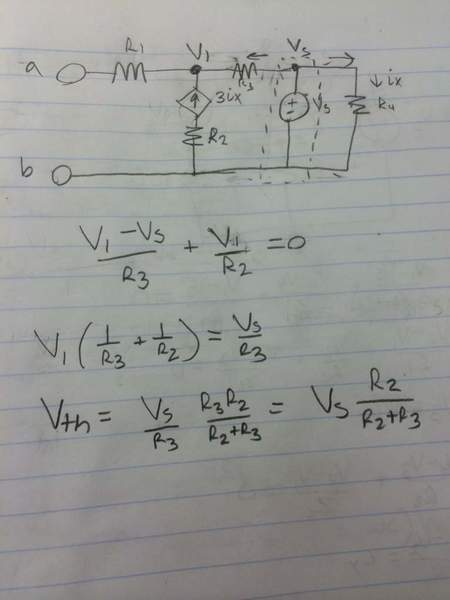 R1 V1 Vs
a R3 ↓ ix
3ix + - Vs R4
R2
b
V1 - Vs / R3 + V1 / R2 = 0
V1 ( 1/R3 + 1/R2 ) = Vs / R3
Vth = Vs / R3 R3 R2 / R2+R3 = Vs R2 / R2+R3